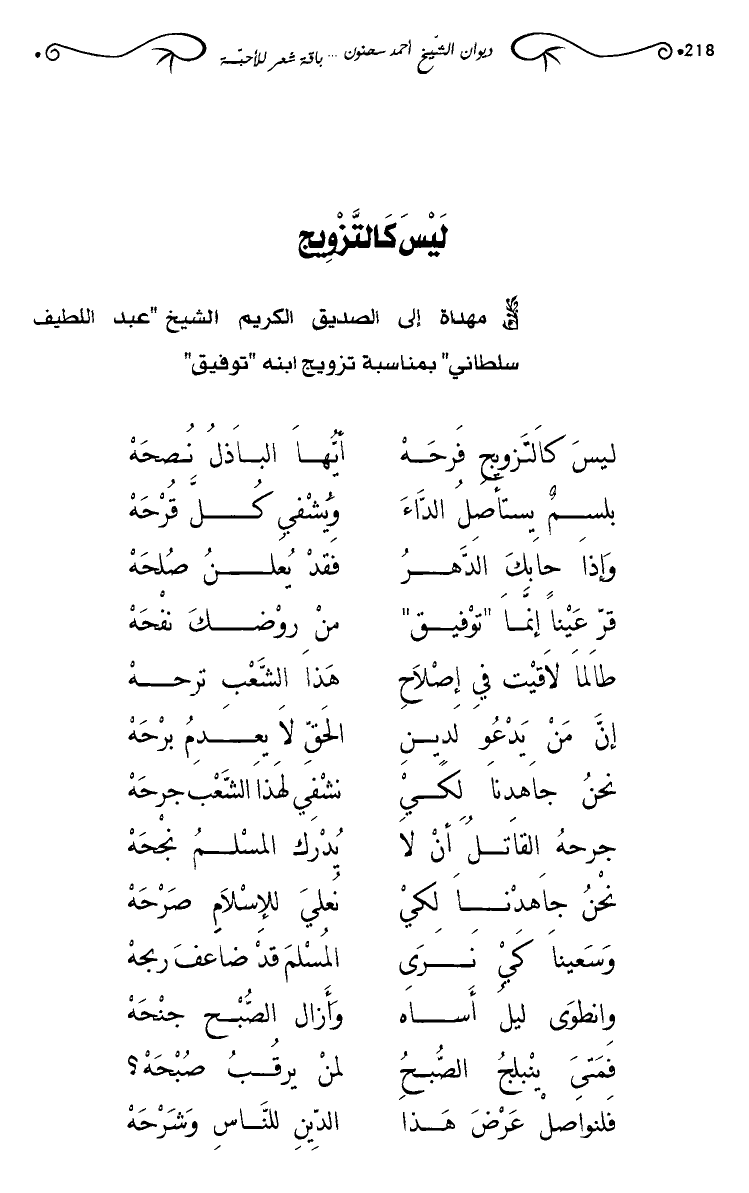 218• ديوان الشّيخ أحمد سحنون ... باقة شعر للأحبّة •
لَيْسَ كَالتَّزْوِيجِ
مهداة إلى الصديق الكريم الشيخ "عبد اللطيف
سلطاني" بمناسبة تزويج ابنه "توفيق"
ليسَ كَالتَّزويجِ فَرحَـهْ أيُّهـا البـاذلُ نُـصحَهْ
بلسـمٌ يستأصلُ الدَّاءَ وَيُشْفي كُـلَّ قُرْحَهْ
وَإذا حابكَ الدَّهـرُ فقدْ يُعلـنُ صُلحَهْ
قرّ عَيْناً إنَّما "تَوْفيـق" منْ روْضـكَ نفْحَهْ
طالما لاَقيْت في إصْلاَحِ هَذا الشَّعْبِ ترحـهْ
إنَّ مَنْ يَدْعُو لدينِ الحَقِّ لاَ يعـدمُ برْحَهْ
نحنُ جاهدنا لكـيْ نشْفي لهذا الشَّعْب جرحَهْ
جرحهُ القاتـلُ أنْ لاَ يُدْركَ المسْلـمُ نجْحَهْ
نحْنُ جاهدْنـا لكيْ نُعليَ للإسْلاَمِ صَرْحَهْ
وَسَعينا كيْ نـرَى المُسْلمَ قدْ ضاعفَ ربحهْ
وانطوَى ليلُ أَسـاه وَأَزال الصُّبْـح جنْحَهْ
فمَتىَ ينْبلجُ الصُّبـحُ لمنْ يرقـبُ صُبْحَهْ؟
فلنواصلْ عَرْضَ هَـذا الدّينِ للنَّـاسِ وَشَرْحَهْ